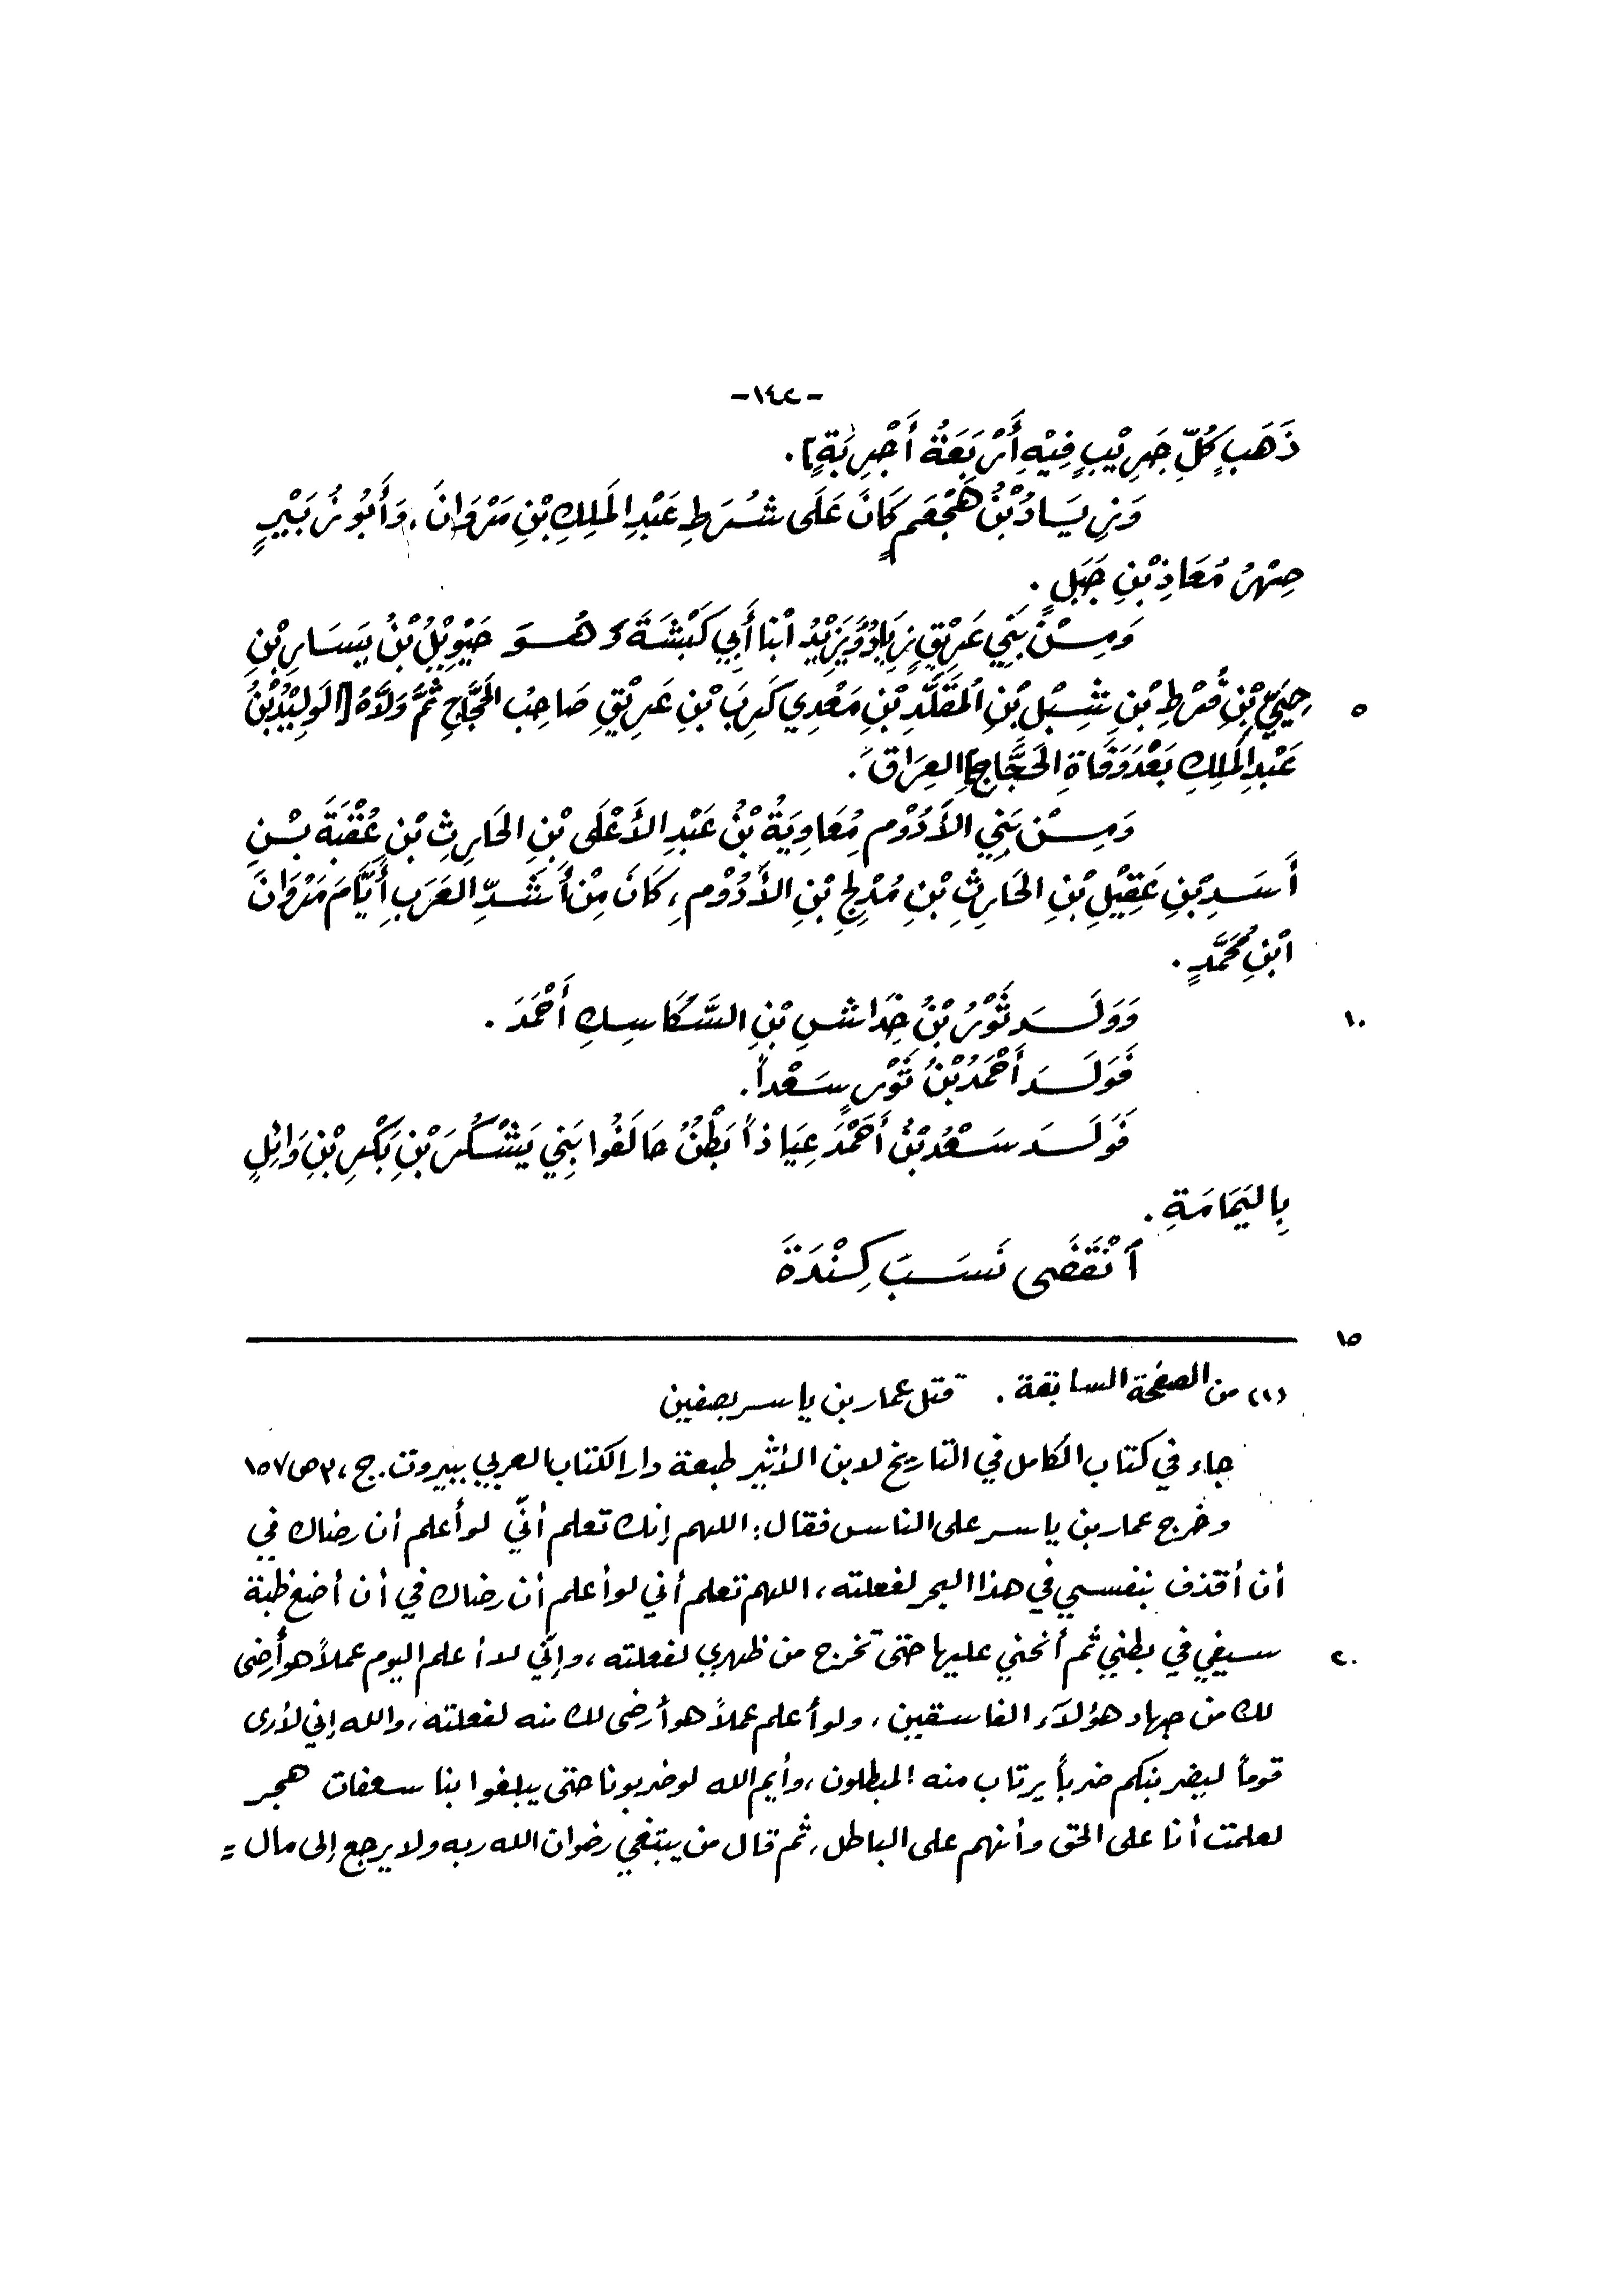 -١٤٢-
ذَهَبٍ كُلِّ جَرِيْبٍ فِيْهِ أَرْبَعَةُ أَجْرِبَةٍ].
وَزِيَادُ بْنُ هَجْعَمٍ كَانَ عَلَى شُرَطِ عَبْدِ المَلِكِ بْنِ مَرْوَانَ، وَأَبُو زُبَيْبٍ
صِهْرُ مُعَاذِ بْنِ جَبَلٍ.
وَمِنْ بَنِي عَرِيْقٍ زِيَادُ وَيَزِيْدُ ابْنَا أَبِي كَبْشَةَ وَهُوَ حَيْوِيْلُ بْنُ يَسَارِ بْنِ
٥ حِيَيِّ بْنِ قُرْطِ بْنِ شِبْلِ بْنِ المُقَلَّدِ بْنِ مَعْدِي كَرِبَ بْنِ عَرِيْقٍ صَاحِبُ الحَجَّاجِ ثُمَّ وَلَّاهُ [الوَلِيْدُ بْنُ
عَبْدِ المَلِكِ بَعْدَ وَفَاةِ الحَجَّاجِ] العِرَاقَ.
وَمِنْ بَنِي الأَدْوَمِ مُعَاوِيَةُ بْنُ عَبْدِ الأَعْلَى بْنِ الحَارِثِ بْنِ عُقْبَةَ بْنِ
أَسَدِ بْنِ عَقِيْلِ بْنِ الحَارِثِ بْنِ مُدْلِجِ بْنِ الأَدْوَمِ، كَانَ مِنْ أَشَدِّ العَرَبِ أَيَّامَ مَرْوَانَ
ابْنِ مُحَمَّدٍ.
١٠ وَوَلَدَ ثَوْرُ بْنُ خِدَاشِ بْنِ السَّكَاسِكِ أَحْمَدَ.
فَوَلَدَ أَحْمَدُ بْنُ ثَوْرٍ سَعْداً.
فَوَلَدَ سَعْدُ بْنُ أَحْمَدَ عِيَاذاً بَطْنٌ حَالَفُوا بَنِي يَشْكُرَ بْنِ بَكْرِ بْنِ وَائِلٍ
بِاليَمَامَةِ.
اْنْقَضَى نَسَبَ كِنْدَةَ
١٥
(١) من الصفحة السابقة. قتل عمار بن ياسر بصفين
جاء في كتاب الكامل في التاريخ لابن الأثير طبعة دار الكتاب العربي ببيروت. ج، ٣ ص ١٥٧
وخرج عمار بن ياسر على الناس فقال: اللهم إنك تعلم أنّي لو أعلم أن رضاك في
أن أقذف بنفسي في هذا البحر لفعلته، اللهم تعلم أني لو أعلم أن رضاك في أن أضع ظبة
٢٠ سيفي في بطني ثم أنحني عليها حتى تخرج من ظهري لفعلته، وإنّي لا أعلم اليوم عملاً هو أرضى
لك من جهاد هؤلاء الفاسقين، ولو أعلم عملاً هو أرضى لك منه لفعلته، والله إني لأرى
قوماً ليضربنكم ضرباً يرتاب منه المبطلون، وأيم الله لو ضربونا حتى يبلغوا بنا سعفات هجر
لعلمت أنا على الحق وأنهم على الباطل، ثم قال من يبتغي رضوان الله ربه ولا يرجع إلى مال =